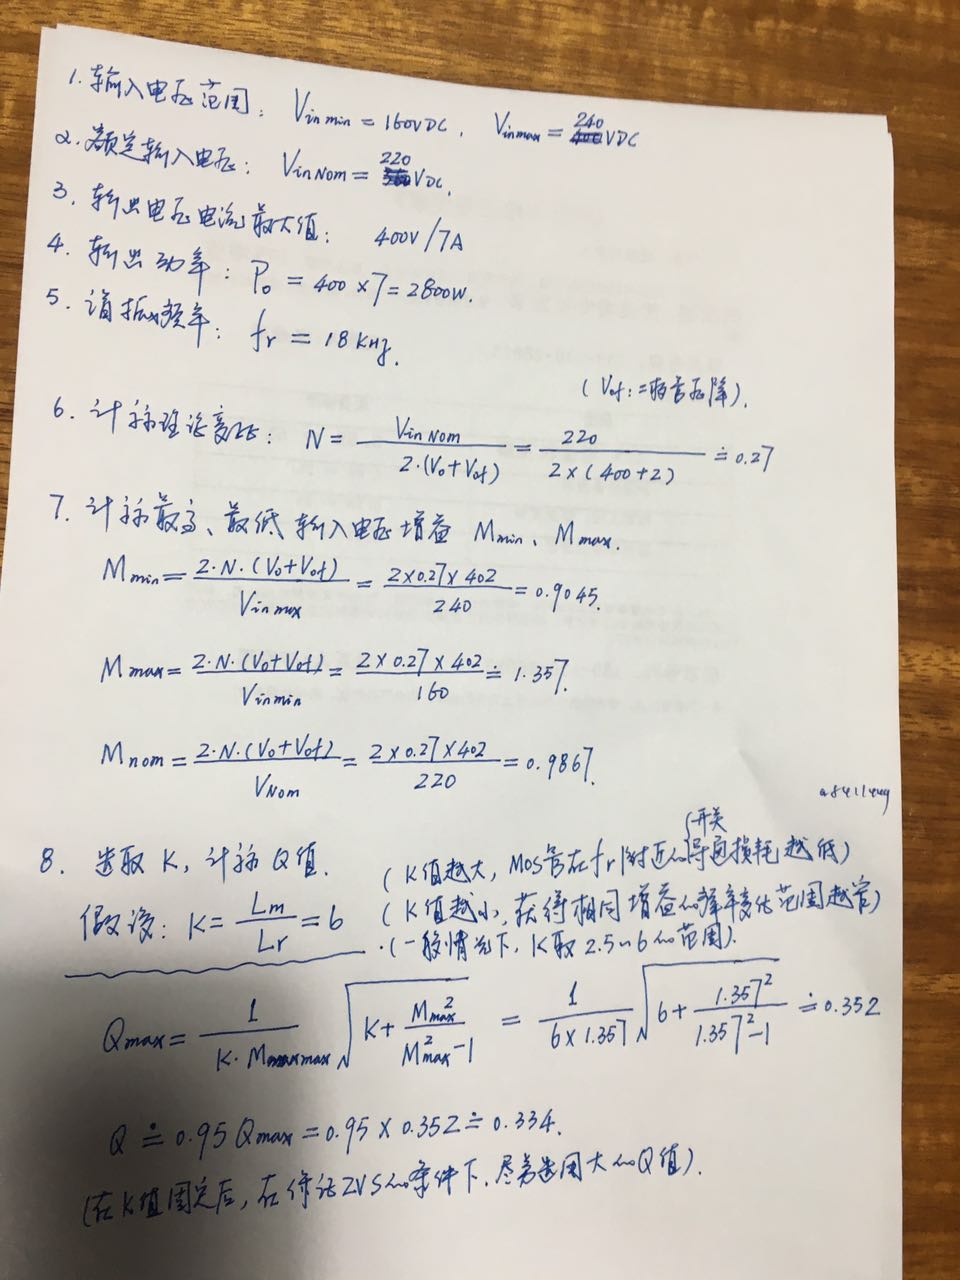 1. 输入电压范围: Vin min = 160VDC, Vinmax = 240VDC
2. 额定输入电压: Vin Nom = 220VDC.
3. 输出电压电流最大值: 400V/7A
4. 输出功率: Po = 400×7=2800W.
5. 谐振频率: fr = 18KHz.
(Vof:二极管压降).
6. 计算理论变比: N = Vin Nom / 2·(Vo+Vof) = 220 / 2×(400+2) ≐ 0.27
7. 计算最高、最低输入电压增益 Mmin、Mmax.
Mmin = 2·N·(Vo+Vof) / Vinmax = 2×0.27×402 / 240 = 0.9045.
Mmax = 2·N·(Vo+Vof) / Vinmin = 2×0.27×402 / 160 ≐ 1.357.
Mnom = 2·N·(Vo+Vof) / VNom = 2×0.27×402 / 220 = 0.9867.
开关
8. 选取 K, 计算 Q值. (K值越大, MOS管在fr附近的导通损耗越低)
假设: K = Lm / Lr = 6 (K值越小, 获得相同增益的频率变化范围越窄)
(一般情况下, K取 2.5~6的范围).
Qmax = 1 / K·Mmax √(K + Mmax² / Mmax²-1) = 1 / 6×1.357 √(6 + 1.357² / 1.357²-1) ≐ 0.352
Q ≐ 0.95 Qmax = 0.95 × 0.352 ≐ 0.334.
(在K值固定后, 在保证ZVS的条件下, 尽量选用大的Q值).